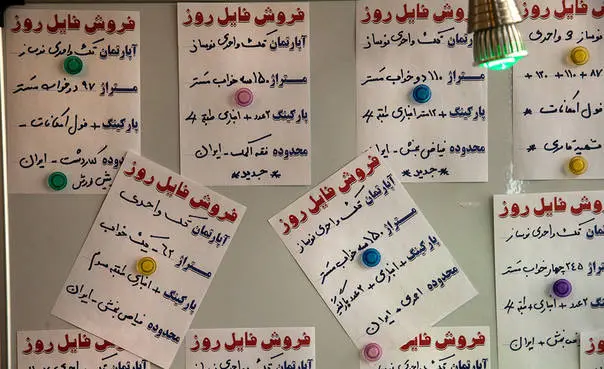 فروش فایل روز
آپارتمان تک واحدی نوساز
متراژ ۹۷ دو خوابه مستر
پارکینگ + فول امکانات -
محدوده گلدشت - ایران
فروش فایل روز
آپارتمان تک واحدی نوساز
متراژ ۱۵۰ سه خواب مستر
پارکینگ ۲ عدد + انباری طبقه ۴
محدوده - ایران
* جدید *
فروش فایل روز
آپارتمان تک واحدی نوساز
متراژ ۱۱۰ دو خواب مستر
پارکینگ + ۱۲ متر انباری طبقه ۴
محدوده فیاض بخش - ایران
* جدید *
فروش فایل روز
نوساز ۳ واحدی
۸۷ + ۱۱۰ + ۱۳۰ +
* فول امکانات *
*
فروش فایل روز
آپارتمان تک واحدی
متراژ ۶۲ - یک خواب
پارکینگ + انباری طبقه سوم
محدوده فیاض بخش - ایران
فروش فایل روز
آپارتمان تک واحدی نوساز
متراژ ۱۵۰ سه خواب مستر
پارکینگ + انباری + ۲ عدد پارکینگ
محدوده + ایران
فروش فایل رو
تمان تک واحدی نوساز
متراژ ۲۴۵ چهار خواب مستر
پارکینگ ۲ عدد + انباری + طبقه ۴
بخش + ایران
فروش فایل روز
آپارتمان تک واحدی
فروش فایل روز
آپارتمان تک واحدی نوساز
فروش فایل روز
آپارتمان تک واحدی